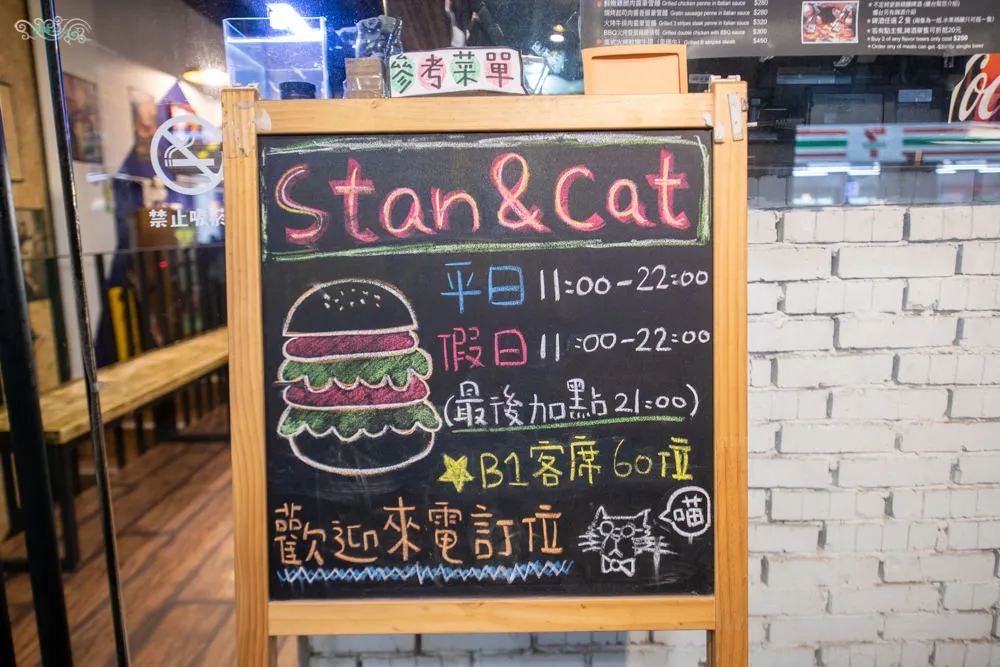 參考菜單
Grilled chicken penne in Italian sauce $280
Gratin sausage penne in Italian sauce $280
Grilled 3 stripes steak penne in Italian sauce $320
Grilled double chicken with BBQ sauce $300
$450
• Buy 2 of any flavor beers only cost $250
禁止吸菸
Stan & Cat
平日 11:00-22:00
假日 11:00-22:00
(最後加點 21:00)
B1客席 60位
歡迎來電訂位
喵
7